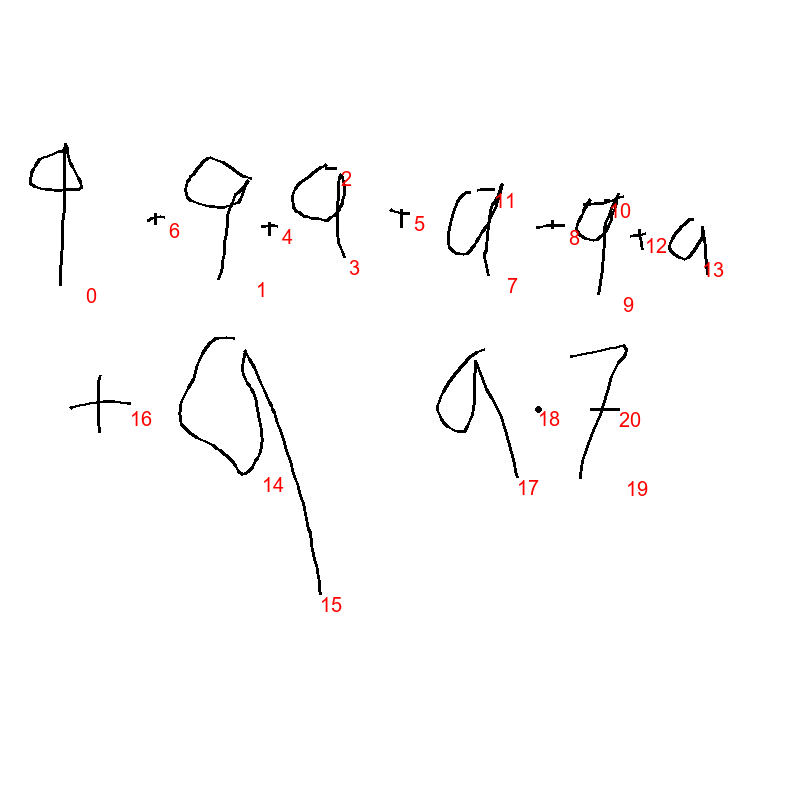 9 + 9 + 9 + 9 + 9 + 9
+ 9 9 · 7
0 6 1 4 2 3 5 7 11 8 10 9 12 13
16 14 15 17 18 19 20